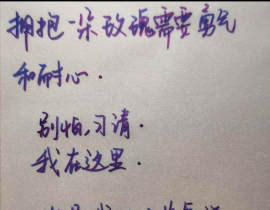 拥抱一朵玫瑰需要勇气
和耐心.
别怕,习清.
我在这里.